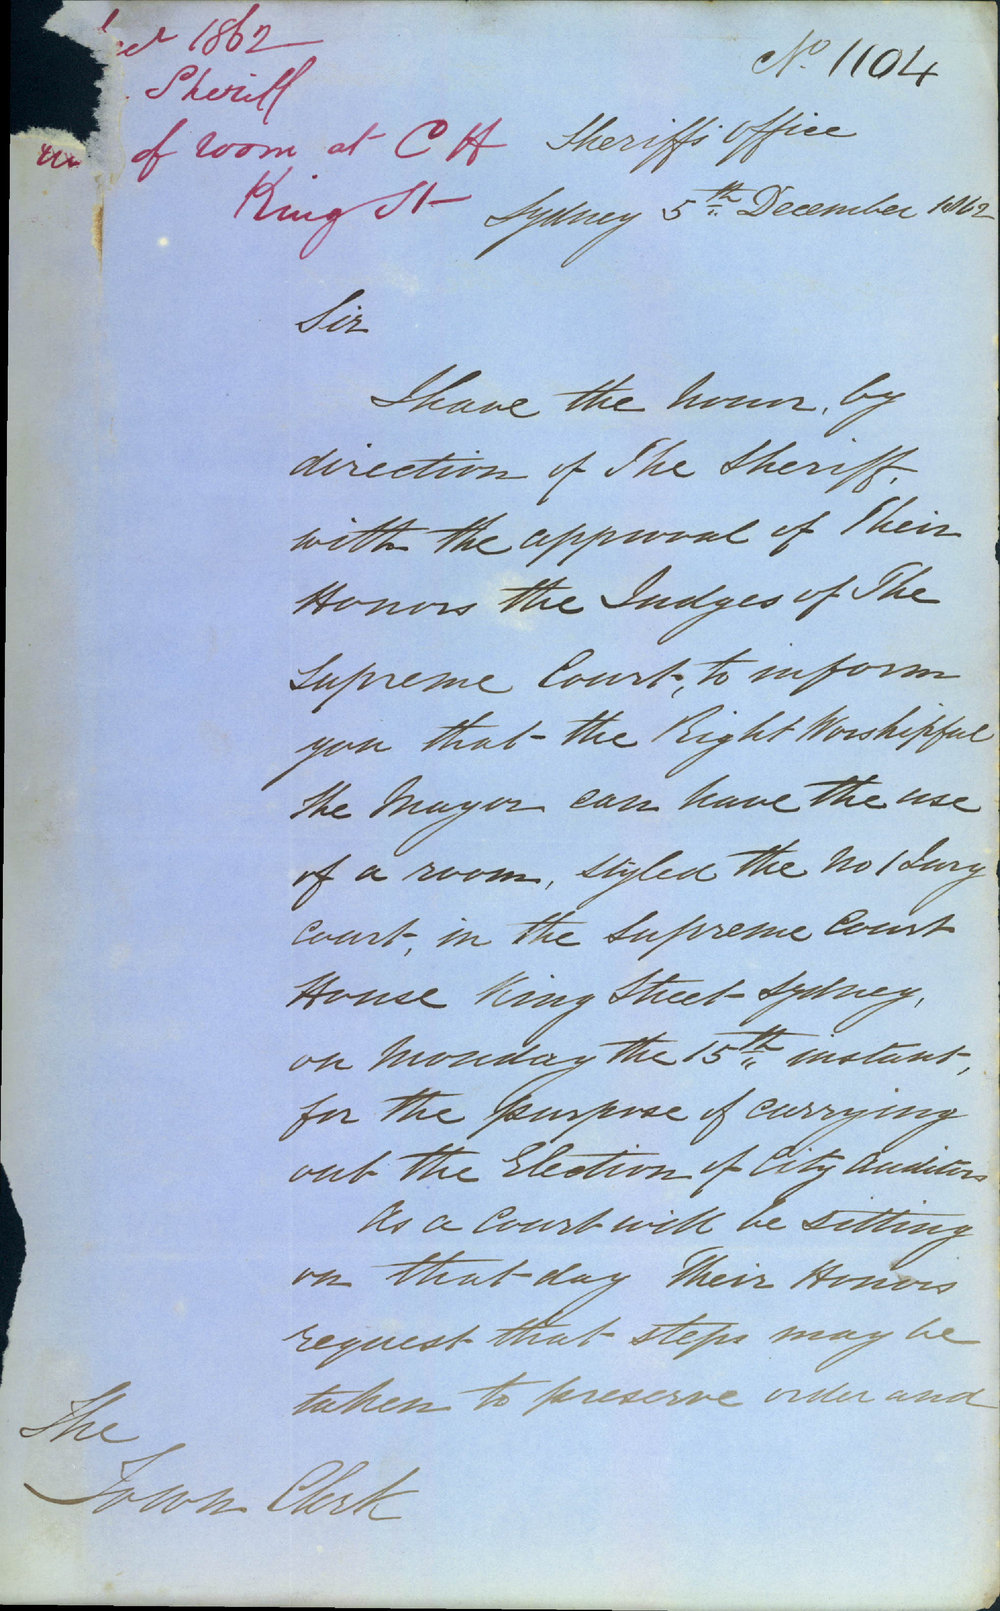 1862
Sheriff
of room at C H
King St
No. 1104
Sheriff's Office
Sydney 5th December 1862
Sir
I have the honor, by
direction of The Sheriff,
with the approval of Their
Honors the Judges of The
Supreme Court, to inform
you that the Right Worshipful
the Mayor can have the use
of a room, styled the No 1 Jury
Court, in the Supreme Court
House King Street Sydney,
on Monday the 15th instant,
for the purpose of carrying
out the Election of City Auditors
As a Court will be sitting
on that day Their Honors
request that steps may be
taken to preserve order and
The
Town Clerk